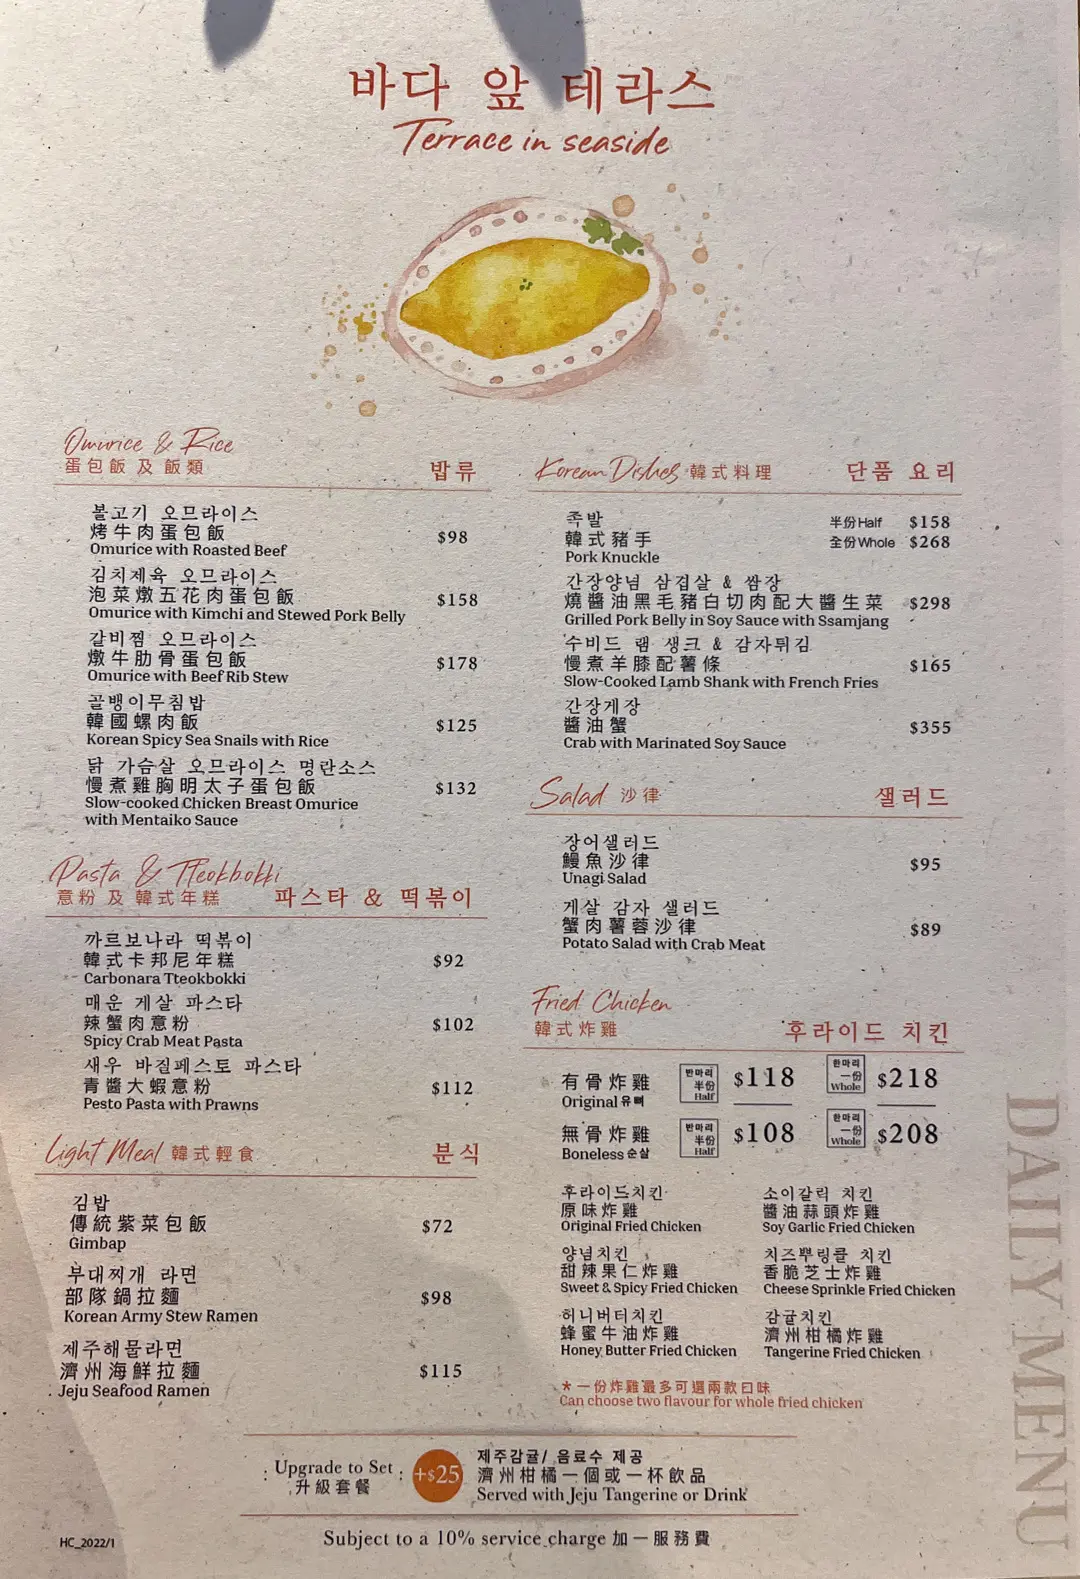 바다 앞 테라스
Terrace in seaside
Omurice & Rice
蛋包飯 及 飯類 밥류
불고기 오므라이스
烤牛肉蛋包飯 $98
Omurice with Roasted Beef
김치제육 오므라이스
泡菜燉五花肉蛋包飯 $158
Omurice with Kimchi and Stewed Pork Belly
갈비찜 오므라이스
燉牛肋骨蛋包飯 $178
Omurice with Beef Rib Stew
골뱅이무침밥
韓國螺肉飯 $125
Korean Spicy Sea Snails with Rice
닭 가슴살 오므라이스 명란소스
慢煮雞胸明太子蛋包飯 $132
Slow-cooked Chicken Breast Omurice
with Mentaiko Sauce
Pasta & Tteokbokki
意粉 及 韓式年糕 파스타 & 떡볶이
까르보나라 떡볶이
韓式卡邦尼年糕 $92
Carbonara Tteokbokki
매운 게살 파스타
辣蟹肉意粉 $102
Spicy Crab Meat Pasta
새우 바질페스토 파스타
青醬大蝦意粉 $112
Pesto Pasta with Prawns
Light Meal 韓式輕食 분식
김밥
傳統紫菜包飯 $72
Gimbap
부대찌개 라면
部隊鍋拉麵 $98
Korean Army Stew Ramen
제주해물라면
濟州海鮮拉麵 $115
Jeju Seafood Ramen
Korean Dishes 韓式料理 단품 요리
족발 半份Half $158
韓式豬手 全份Whole $268
Pork Knuckle
간장양념 삼겹살 & 쌈장
燒醬油黑毛豬白切肉配大醬生菜 $298
Grilled Pork Belly in Soy Sauce with Ssamjang
수비드 램 생크 & 감자튀김
慢煮羊膝配薯條 $165
Slow-Cooked Lamb Shank with French Fries
간장게장
醬油蟹 $355
Crab with Marinated Soy Sauce
Salad 沙律 샐러드
장어샐러드
鰻魚沙律 $95
Unagi Salad
게살 감자 샐러드
蟹肉薯蓉沙律 $89
Potato Salad with Crab Meat
Fried Chicken
韓式炸雞 후라이드 치킨
有骨炸雞 반마리 半份 Half $118 한마리 一份 Whole $218
Original 유뼈
無骨炸雞 반마리 半份 Half $108 한마리 一份 Whole $208
Boneless 순살
후라이드치킨 소이갈릭 치킨
原味炸雞 醬油蒜頭炸雞
Original Fried Chicken Soy Garlic Fried Chicken
양념치킨 치즈뿌링클 치킨
甜辣果仁炸雞 香脆芝士炸雞
Sweet & Spicy Fried Chicken Cheese Sprinkle Fried Chicken
허니버터치킨 감귤치킨
蜂蜜牛油炸雞 濟州柑橘炸雞
Honey Butter Fried Chicken Tangerine Fried Chicken
*一份炸雞最多可選兩款口味
Can choose two flavour for whole fried chicken
DAILY MENU
Upgrade to Set
升級套餐
+$25
제주감귤/ 음료수 제공
濟州柑橘一個或一杯飲品
Served with Jeju Tangerine or Drink
HC_2022/1
Subject to a 10% service charge 加一服務費